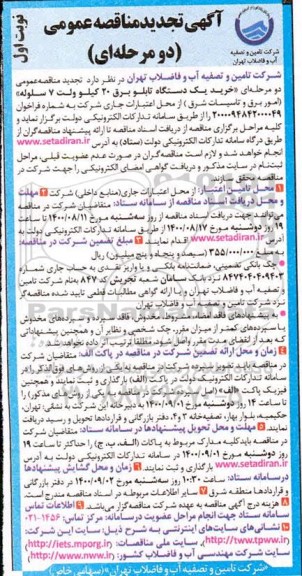 نوبت اول
آگهی تجدید مناقصه عمومی
(دو مرحله‌ای)
شرکت تامین و تصفیه
آب و فاضلاب تهران
شرکت تامین و تصفیه آب و فاضلاب تهران در نظر دارد تجدید مناقصه عمومی
دو مرحله‌ای «خرید یک دستگاه تابلو برق ۲۰ کیلو ولت ۷ سلوله»
(امور برق و تاسیسات شرق) از محل اعتبارات جاری شرکت به شماره فراخوان
۲۰۰۰۰۹۴۸۴۲۰۰۰۰۴۹ را از طریق سامانه تدارکات الکترونیکی دولت برگزار نماید و
کلیه مراحل برگزاری مناقصه از دریافت اسناد مناقصه تا ارائه پیشنهاد مناقصه‌گران از
طریق درگاه سامانه تدارکات الکترونیکی دولت (ستاد) به آدرس
www.setadiran.ir
انجام خواهد شد و لازم است مناقصه‌گران در صورت عدم عضویت قبلی، مراحل
ثبت‌نام در سایت مذکور و دریافت گواهی امضای الکترونیکی را جهت شرکت در
مناقصه محقق سازند.
۱ محل تامین اعتبار: از محل اعتبارات جاری (منابع داخلی) شرکت ۲ مهلت
و محل دریافت اسناد مناقصه از سامانه ستاد: متقاضیان شرکت در مناقصه
می‌توانند جهت دریافت اسناد مناقصه از روز سه‌شنبه مورخ ۱۴۰۰/۰۸/۱۱ تا ساعت
۱۹ روز دوشنبه مورخ ۱۴۰۰/۰۸/۱۷ از طریق سامانه تدارکات الکترونیکی دولت به
آدرس www.setadiran.ir اقدام نمایند. ۳ مبلغ تضمین شرکت در مناقصه:
۳۵۵/۰۰۰/۰۰۰ (سیصد و پنجاه و پنج میلیون) ریال
چک بانکی تضمینی، ضمانتنامه بانکی و یا واریز نقدی به حساب جاری شماره
۸۴۷۴۰۴۰۴۰۹۴۰۳ نزد بانک سامان شعبه تجریش کد ۸۴۷ به نام شرکت تامین
و تصفیه آب و فاضلاب تهران و یا ارائه گواهی مطالبات قطعی تایید شده مناقصه‌گر
نزد شرکت تامین و تصفیه آب و فاضلاب تهران
به پیشنهادهای فاقد امضاء، مشروط، مخدوش، فاقد سپرده، سپرده‌های مخدوش
یا سپرده‌های کمتر از میزان مقرر، چک شخصی و نظایر آن و همچنین پیشنهاداتی
که بعد از انقضای مدت مقرر واصل شود، مطلقا ترتیب اثر داده نخواهد شد.
۴ زمان و محل ارائه تضمین شرکت در مناقصه در پاکت الف: متقاضیان شرکت
در مناقصه باید تصویر سپرده شرکت در مناقصه به یکی از روش‌های فوق‌الذکر را در
سامانه تدارکات الکترونیک دولت در پاکت (الف) بارگذاری و ثبت نمایند و همچنین
فیزیک پاکت «الف» (اصل سپرده شرکت در مناقصه به یکی از روش‌های مذکور) را
تا ساعت ۱۴ روز دوشنبه مورخ ۱۴۰۰/۰۹/۰۱ به دبیرخانه این شرکت به نشانی: تهران،
حکیمیه، بلوار بهار، تصفیه‌خانه ۳ و ۴، دفتر بازرگانی و قراردادها تحویل و رسید دریافت
نمایند. ۵ مهلت و محل تحویل پیشنهادها در سامانه ستاد: متقاضیان شرکت
در مناقصه باید کلیه مدارک مربوط به پاکات (الف، ب، ج) را حداکثر تا ساعت ۱۹
روز دوشنبه مورخ ۱۴۰۰/۰۹/۰۱ در سامانه تدارکات الکترونیکی دولت به آدرس
www.setadiran.ir بارگذاری و ثبت نمایند. ۶ زمان و محل گشایش پیشنهادها
در سامانه ستاد: ساعت ۱۰:۳۰ روز سه‌شنبه مورخ ۱۴۰۰/۰۹/۰۲ در دفتر بازرگانی
و قراردادها منطقه شرق ۷ سایر اطلاعات مربوطه در اسناد مناقصه مندرج است.
۸ هزینه درج آگهی مناقصه به عهده شرکت مناقصه‌گزار می‌باشد. ۹ اطلاعات تماس
سامانه ستاد جهت انجام مراحل عضویت در سامانه: مرکز تماس: ۱۴۵۶-۰۲۱
۱۰ نشانی‌های سایت‌های اینترنتی به شرح ذیل: سایت این شرکت:
(http://tww.tpww.ir)، سایت ملی مناقصات: (http://iets.mporg.ir)،
سایت شرکت مهندسی آب و فاضلاب کشور: (http://www.nww.ir)
شرکت تامین و تصفیه آب و فاضلاب تهران» (سهامی خاص)